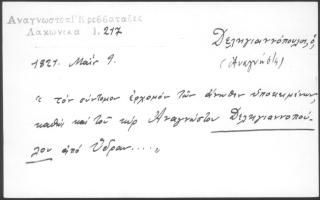 Ἀναγνωστοπ. Κρεββατάδες
Λακωνικά 1. 217
Δεληγιαννόπουλος, ὁ
(Ἀναγνώστης)
1821. Μαΐς 9.
"τὸν σύντομον ἐρχομὸν τῶν ἄνωθεν ὑποκειμένων,
καθὼς καὶ τοῦ κὺρ Ἀναγνώστου Δεληγιαννοπού-
λου ἀπὸ Ὕδραν...."